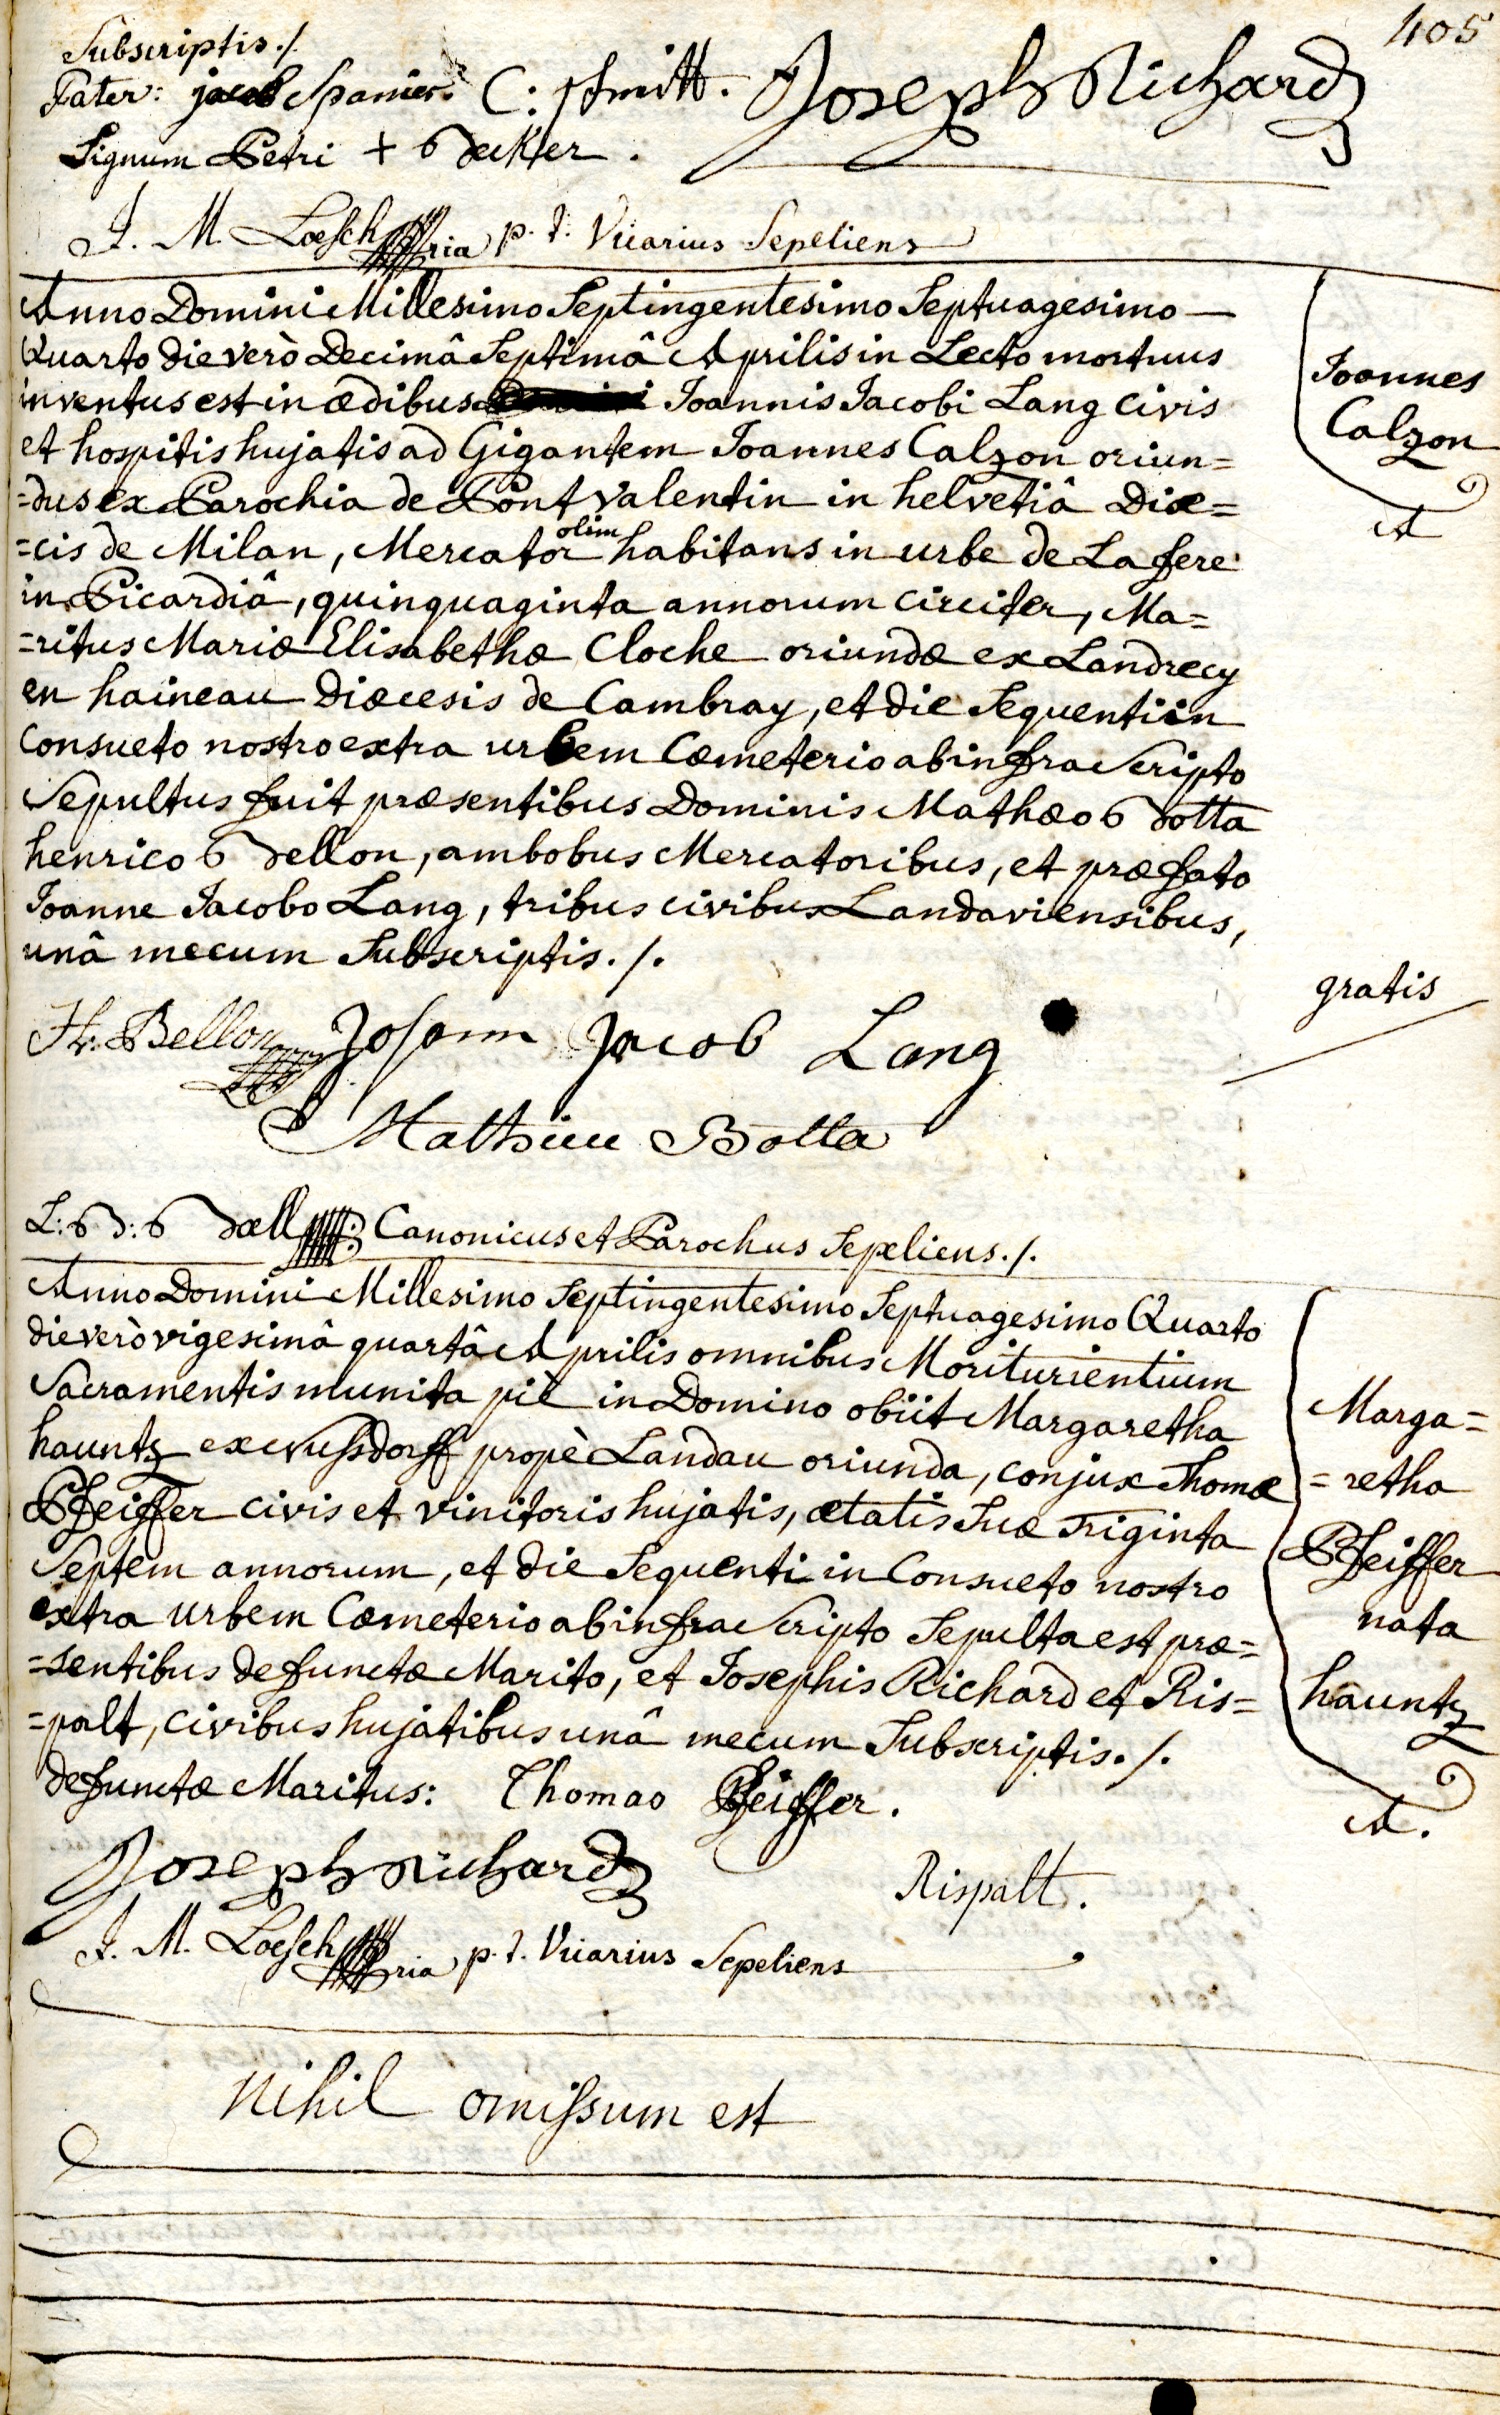 405
Subscriptis ./.
Pater: jacob Spanier. C: schmitt. Joseph Richard
Signum Petri + Becker.
J. M. Loesch ria p. t. Vicarius Sepeliens
Anno Domini Millesimo Septingentesimo Septuagesimo —
Quarto die verò Decimâ Septimâ Aprilis in Lecto mortuus
inventus est in ædibus Joannis Jacobi Lang civis
et hospitis hujatis ad Gigantem Joannes Calzon oriun=
=dus ex Parochia de Pont Valentin in helvetiâ Diœ=
=cis de Milan, Mercator olim habitans in urbe de La fere
in Picardiâ, quinquaginta annorum circiter, Ma=
=ritus Mariæ Elisabethæ Cloche oriundæ ex Landrecy
en haineau Diœcesis de Cambray, et die Sequenti in
Consueto nostro extra urbem Cœmeterio ab infra Scripto
Sepultus fuit præsentibus Dominis Mathæo Botta
henrico Bellon, ambobus Mercatoribus, et præfato
Joanne Jacobo Lang, tribus civibus Landaviensibus,
unâ mecum Subscriptis ./.
Joannes
Calzon
A
gratis
Hr: Bellon Johann Jacob Lang
Mathieu Botta
L: B: Bœll Canonicus et Parochus Sepeliens ./.
Anno Domini Millesimo Septingentesimo Septuagesimo Quarto
die verò vigesimâ quartâ Aprilis omnibus Moriturientium
Sacramentis munita piè in Domino obiit Margaretha
hauntz ex Nussdorff propè Landau oriunda, conjux Thomæ
Pfeiffer civis et vinitoris hujatis, ætatis Suæ Triginta
Septem annorum, et die Sequenti in Consueto nostro
extra urbem Cœmeterio ab infra Scripto Sepulta est præ=
=sentibus defunctæ Marito, et Josephis Richard et Ris=
=palt, civibus hujatibus unâ mecum Subscriptis ./.
Marga=
=retha
Pfeiffer
nata
hauntz
A.
defunctæ Maritus: Thomas Pfeiffer.
Joseph Richard
Rispalt.
J. M. Loesch ria p. t. Vicarius Sepeliens
Nihil omissum est